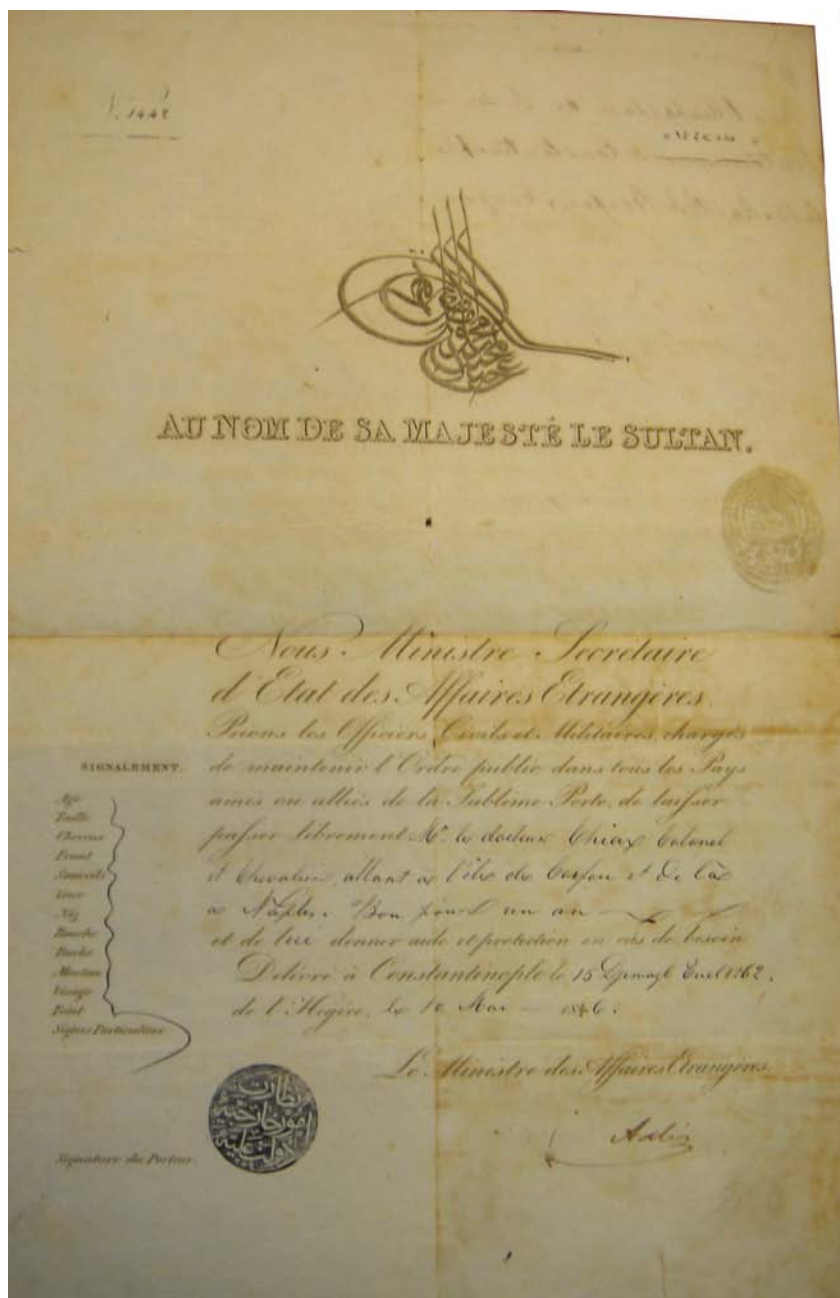 AU NOM DE SA MAJESTÉ LE SULTAN.
Nous Ministre Secrétaire
d'Etat des Affaires Etrangères
Prions les Officiers Civils et Militaires chargés
de maintenir l'Ordre public dans tous les Pays
amis ou alliés de la Sublime Porte, de laisser
passer librement Mr. le docteur Colonel
et Chevalier, allant à l'île de Corfou et de là
à Naples. Bon pour un an
et de lui donner aide et protection en cas de besoin
Délivré à Constantinople le 15 1262.
de l'Hégire, le Mai 1846.
Le Ministre des Affaires Etrangères
SIGNALEMENT.
Age
Taille
Cheveux
Front
Sourcils
Yeux
Nez
Bouche
Barbe
Menton
Visage
Teint
Signes Particuliers
نظارت
امور خارجية
دولت علية
Signature du Porteur